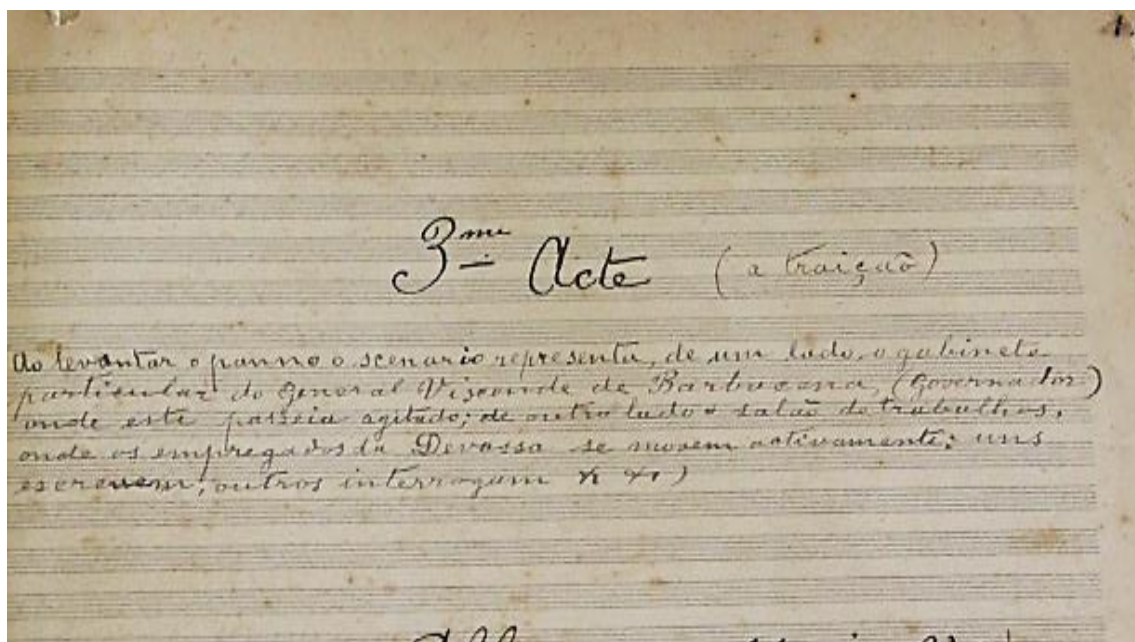 1.
3me Acte (a traição)
Ao levantar o panno o scenario representa, de um lado, o gabinete
particular do General Visconde de Barbacena, (Governador)
onde este passeia agitado; de outro lado o salão de trabalhos,
onde os empregados da Devassa se movem activamente: uns
escrevem, outros interrogam